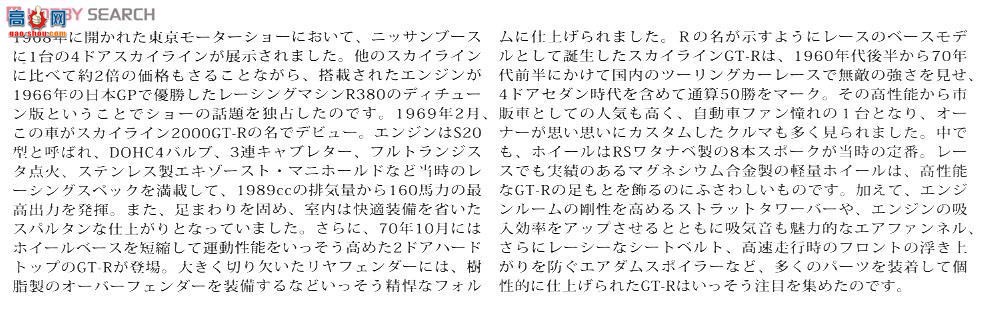 HOBBY SEARCH
高网
1968年に開かれた東京モーターショーにおいて、ニッサンブース
に1台の4ドアスカイラインが展示されました。他のスカイライン
に比べて約2倍の価格もさることながら、搭載されたエンジンが
1966年の日本GPで優勝したレーシングマシンR380のディチュー
ン版ということでショーの話題を独占したのです。1969年2月、
この車がスカイライン2000GT-Rの名でデビュー。エンジンはS20
型と呼ばれ、DOHC4バルブ、3連キャブレター、フルトランジス
タ点火、ステンレス製エキゾースト・マニホールドなど当時のレ
ーシングスペックを満載して、1989ccの排気量から160馬力の最
高出力を発揮。また、足まわりを固め、室内は快適装備を省いた
スパルタンな仕上がりとなっていました。さらに、70年10月には
ホイールベースを短縮して運動性能をいっそう高めた2ドアハード
トップのGT-Rが登場。大きく切り欠いたリヤフェンダーには、樹
脂製のオーバーフェンダーを装備するなどいっそう精悍なフォル
ムに仕上げられました。Rの名が示すようにレースのベースモデ
ルとして誕生したスカイラインGT-Rは、1960年代後半から70年
代前半にかけて国内のツーリングカーレースで無敵の強さを見せ、
4ドアセダン時代を含めて通算50勝をマーク。その高性能から市
販車としての人気も高く、自動車ファン憧れの1台となり、オー
ナーが思い思いにカスタムしたクルマも多く見られました。中で
も、ホイールはRSワタナベ製の8本スポークが当時の定番。レー
スでも実績のあるマグネシウム合金製の軽量ホイールは、高性能
なGT-Rの足もとを飾るのにふさわしいものです。加えて、エンジ
ンルームの剛性を高めるストラットタワーバーや、エンジンの吸
入効率をアップさせるとともに吸気音も魅力的なエアファンネル、
さらにレーシーなシートベルト、高速走行時のフロントの浮き上
がりを防ぐエアダムスポイラーなど、多くのパーツを装着して個
性的に仕上げられたGT-Rはいっそう注目を集めたのです。